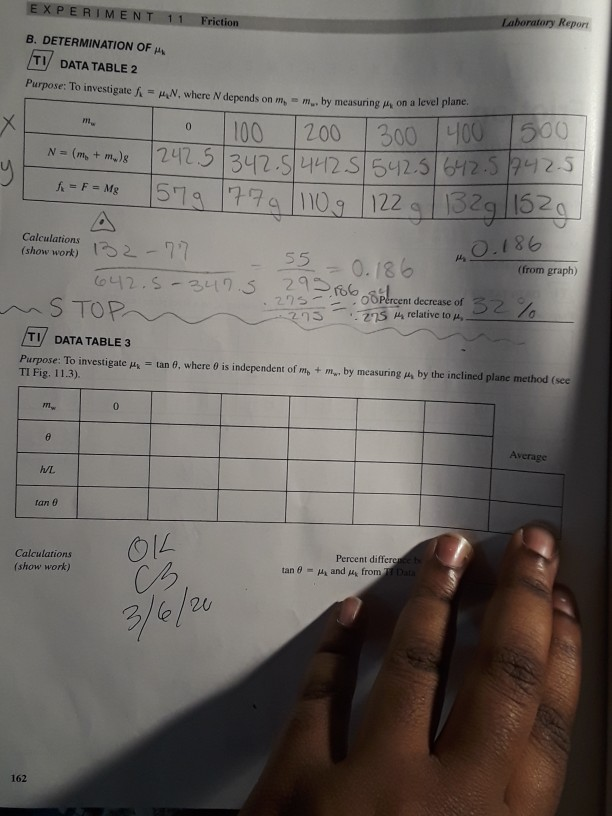 EXPERIMENT 11 Friction Laboratory Report
B. DETERMINATION OF μk
TI DATA TABLE 2
Purpose: To investigate fk = μkN, where N depends on mb = mw, by measuring μk on a level plane.
X mw 0 100 200 300 400 500
y N = (mb + mw)g 242.5 342.5 442.5 542.5 642.5 742.5
fk = F = Mg 57g 77g 110g 122g 132g 152g
Calculations
(show work)
132 - 77 = 55 = 0.186
642.5 - 347.5 295
μk 0.186
(from graph)
.275 - .186 = .0891
.275 .275
Percent decrease of
μk relative to μs 32%
STOP
TI DATA TABLE 3
Purpose: To investigate μk = tan θ, where θ is independent of mb + mw, by measuring μk by the inclined plane method (see
TI Fig. 11.3).
mw 0
θ
Average
h/L
tan θ
Calculations
(show work)
Percent difference
tan θ = μk and μk from TI Data
OK
CB
3/6/20
162